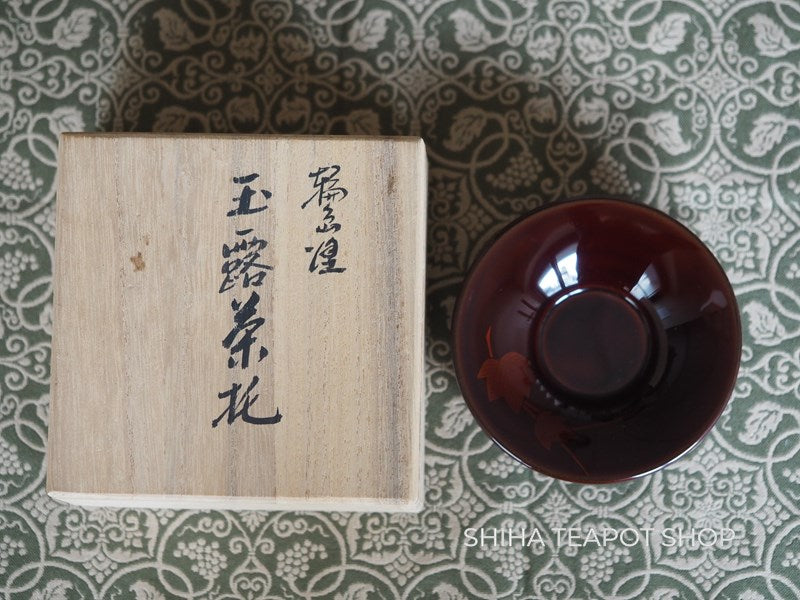 輪島塗
玉露茶托
SHIHA TEAPOT SHOP